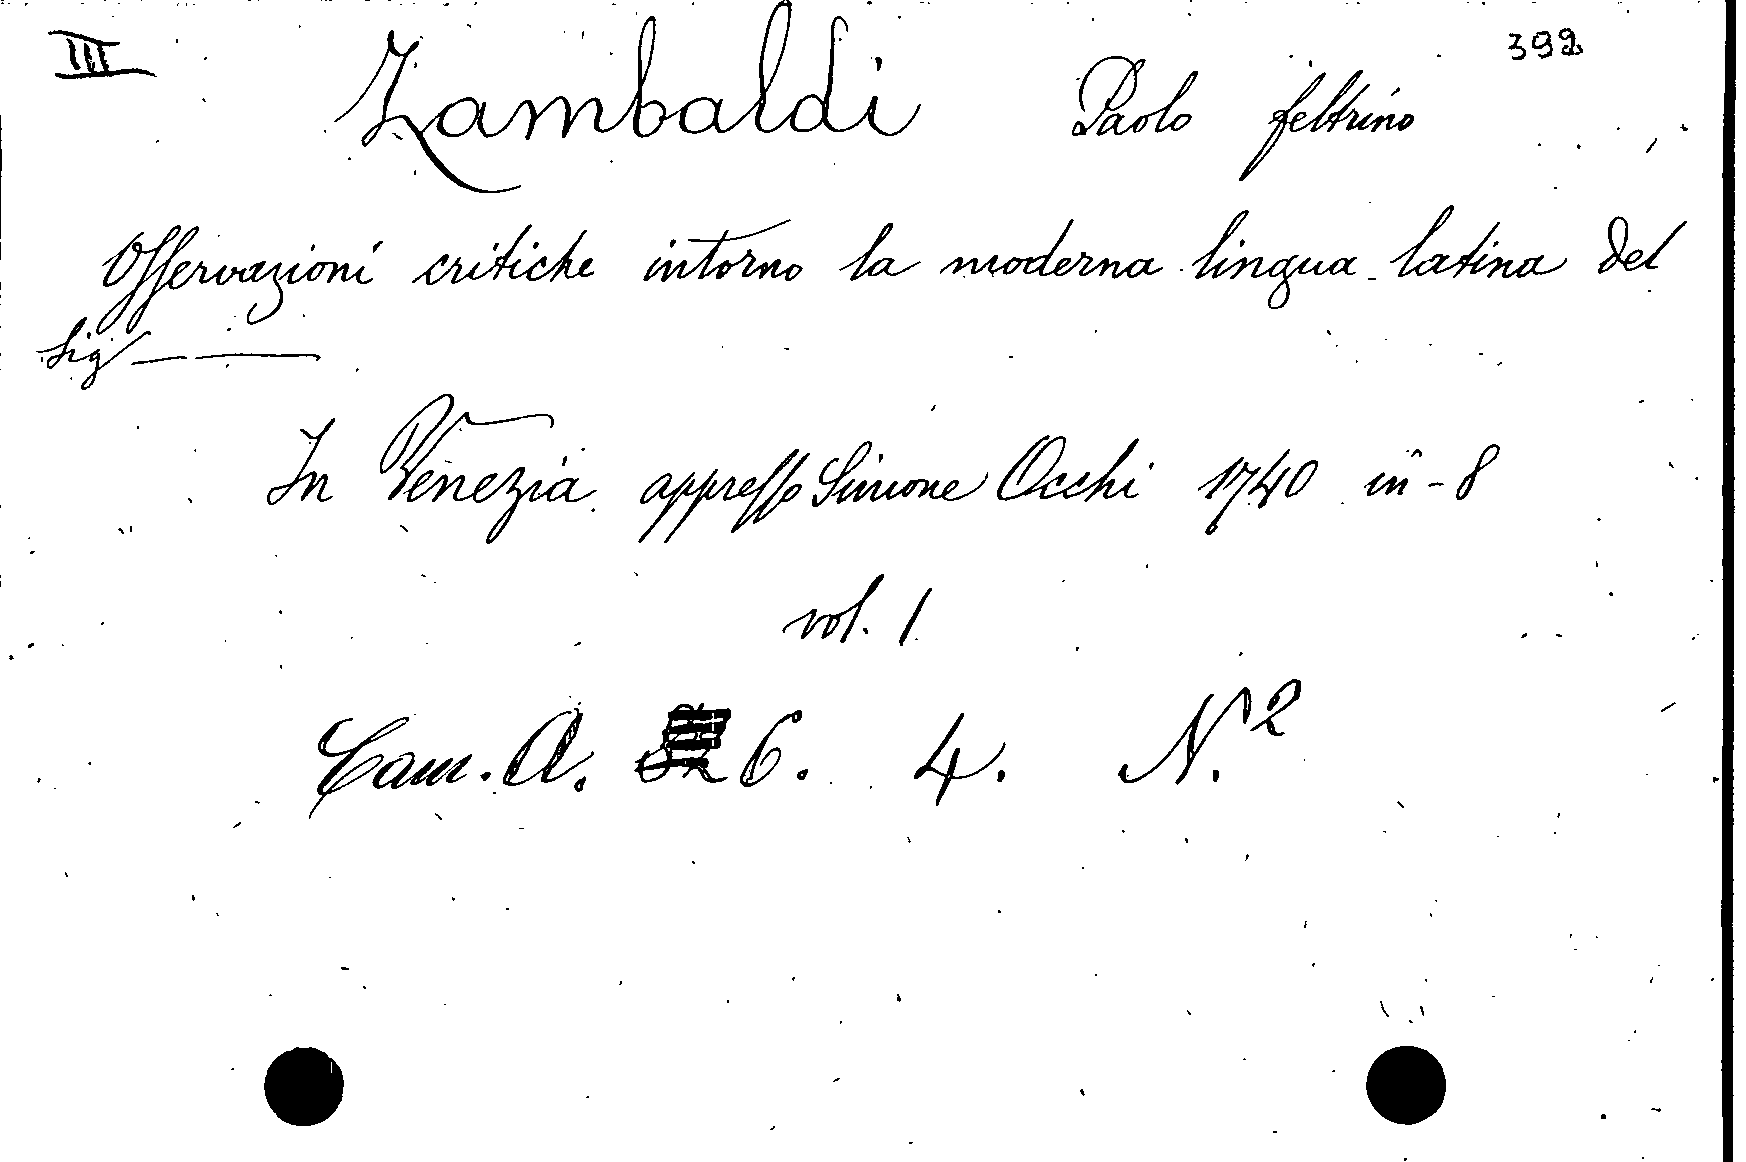 III 392
Zambaldi Paolo feltrino
Osservazioni critiche intorno la moderna lingua latina del
Sig — —
In Venezia appresso Simone Occhi 1740 in-8
vol. 1
Cam. A. 6. 4. N. 2